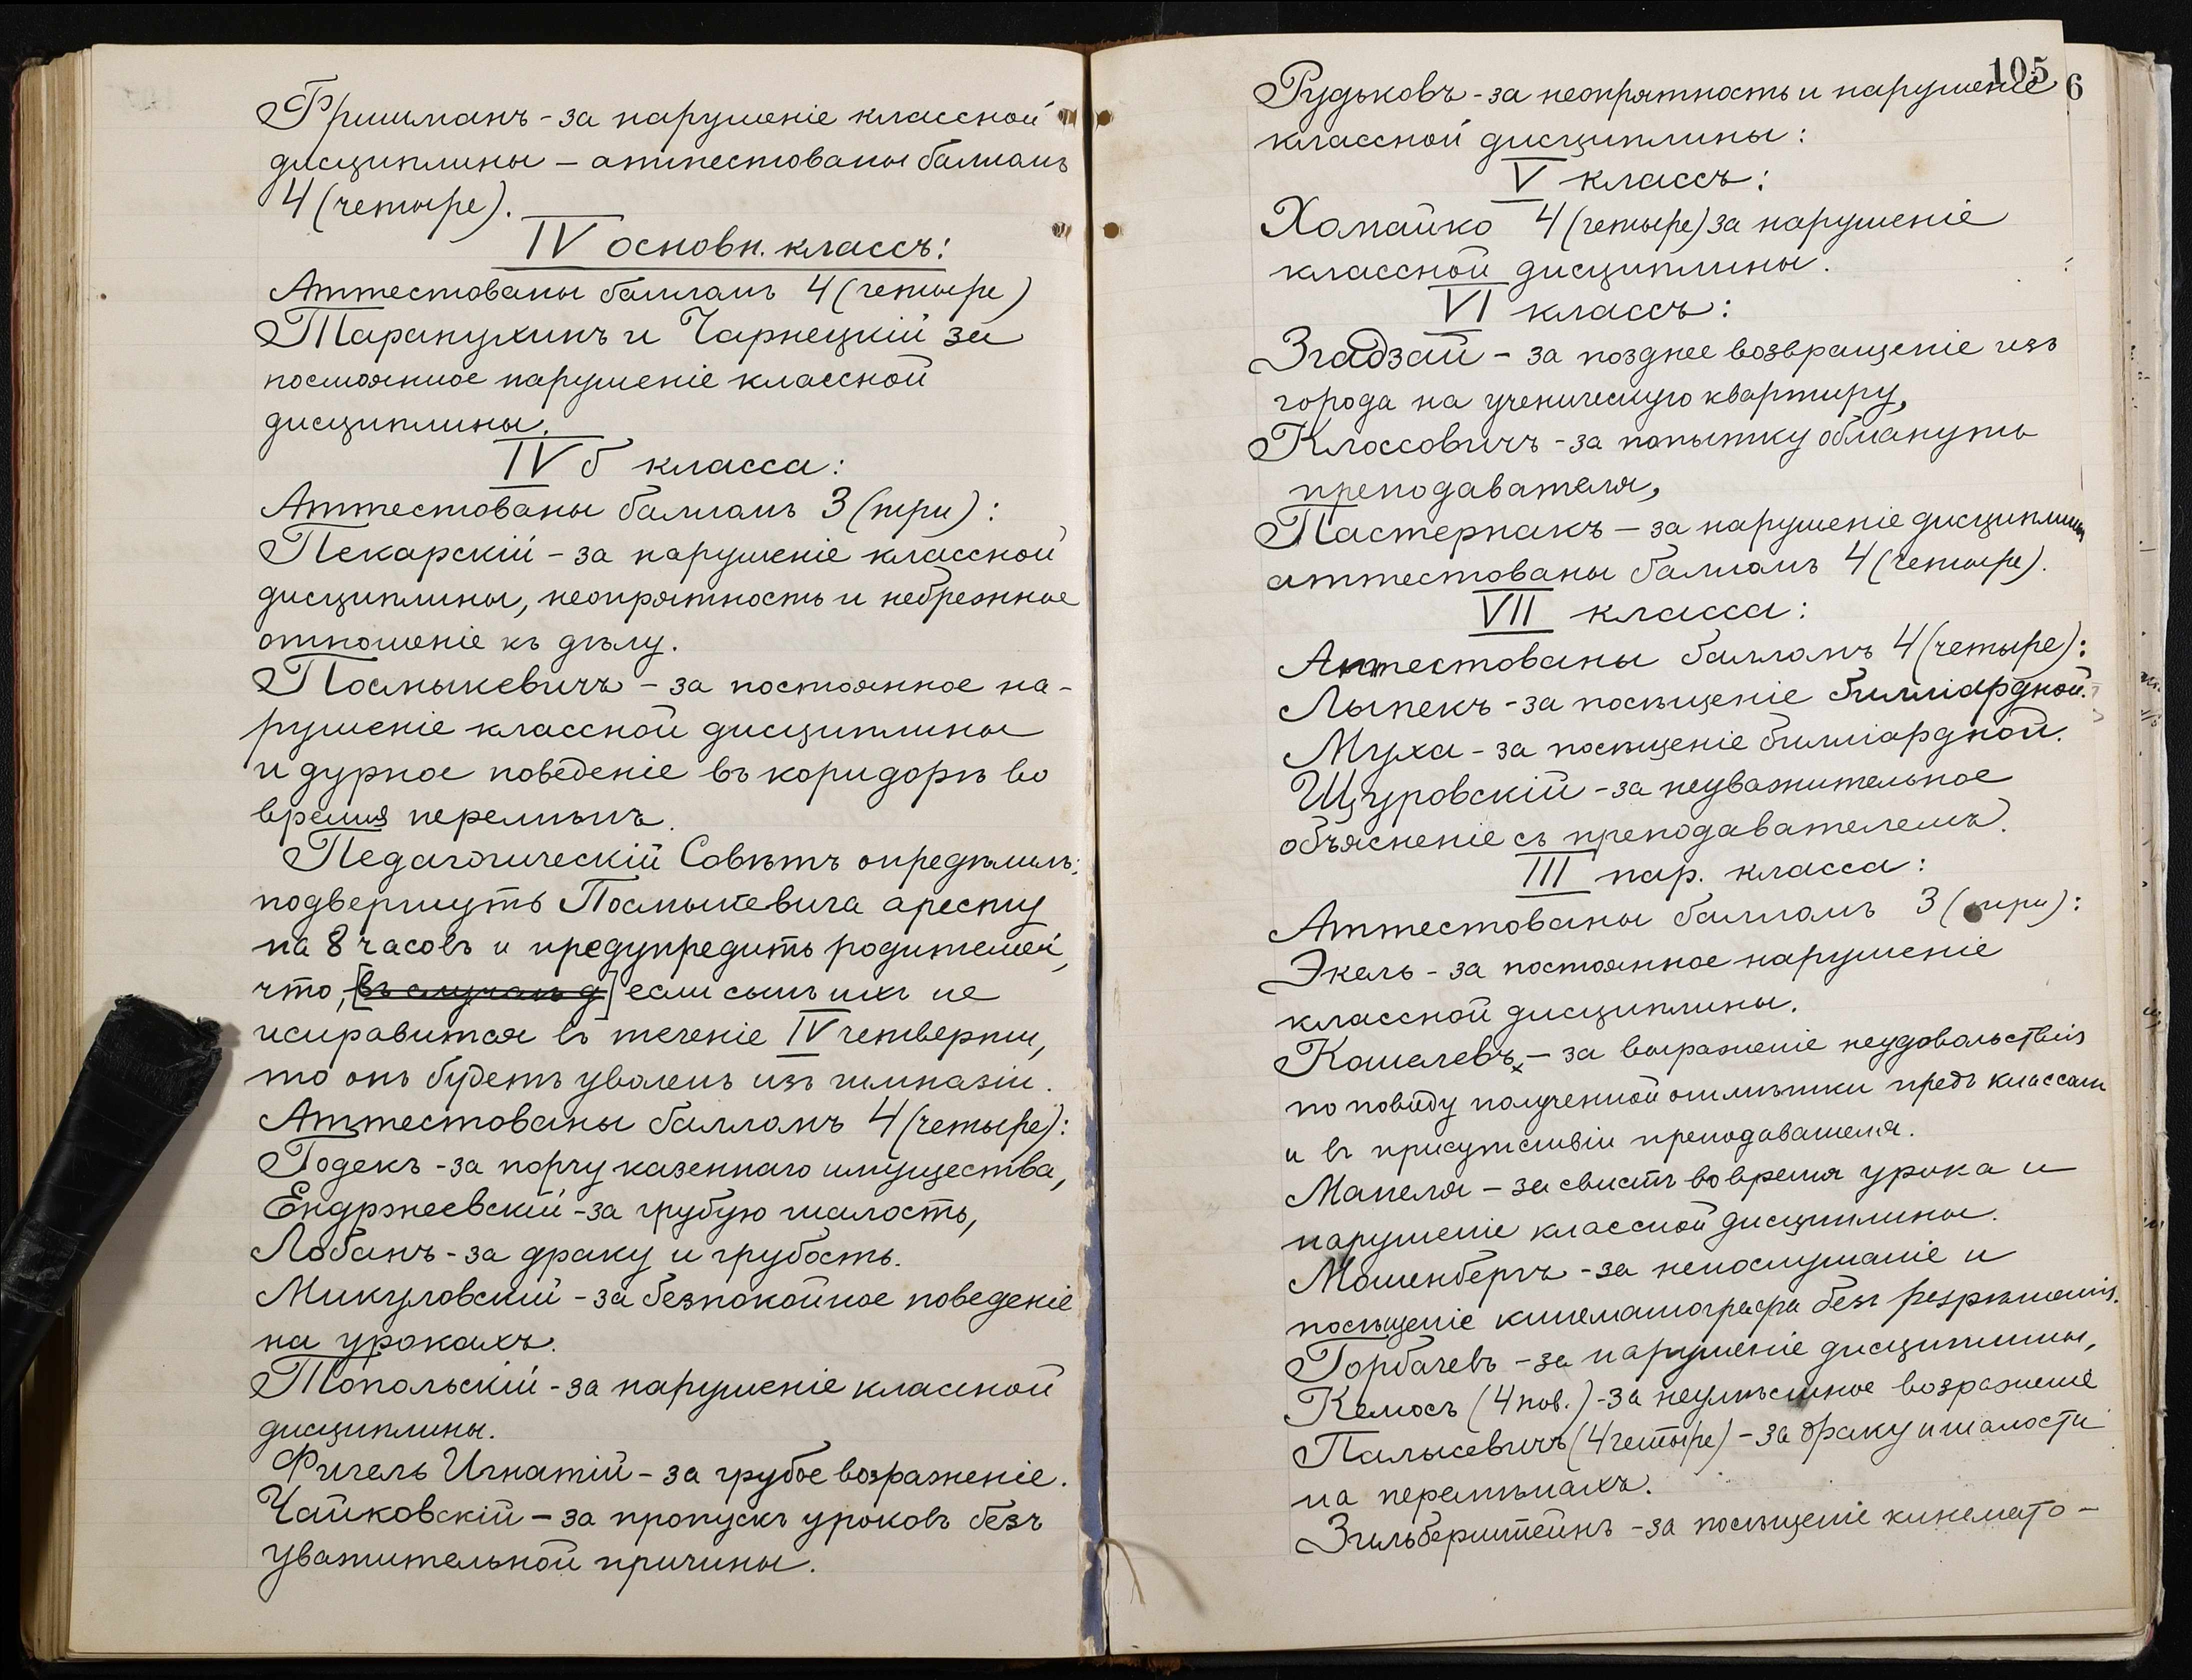 Фришманъ - за нарушеніе классной
дисциплины - аттестованы балломъ
4 (четыре).
IV основн. классъ:
Аттестованы балломъ 4 (четыре)
Таранухинъ и Чарнецкій за
постоянное нарушеніе классной
дисциплины.
IV б класса:
Аттестованы балломъ 3 (три):
Пекарскій - за нарушеніе классной
дисциплины, неопрятность и небрежное
отношеніе къ дѣлу.
Посмыкевичъ - за постоянное на-
рушеніе классной дисциплины
и дурное поведеніе въ коридорѣ во
время перемѣнъ.
Педагогическій Совѣтъ опредѣлилъ:
подвергнуть Посмыкевича аресту
на 8 часовъ и предупредить родителей,
что, [въ случаѣ д] если сынъ ихъ не
исправится въ теченіе IV четверти,
то онъ будетъ уволенъ изъ гимназіи.
Аттестованы балломъ 4 (четыре):
Годекъ - за порчу казеннаго имущества,
Ендржеевскій - за грубую шалость,
Лобанъ - за драку и грубость.
Микуловскій - за безпокойное поведеніе
на урокахъ.
Топольскій - за нарушеніе классной
дисциплины.
Фигель Игнатій - за грубое возраженіе.
Чайковскій - за пропускъ уроковъ безъ
уважительной причины.
105
6
Рудьковъ - за неопрятность и нарушеніе
классной дисциплины:
V классъ:
Хомайко 4 (четыре) за нарушеніе
классной дисциплины.
VI классъ:
Згадзай - за позднее возвращеніе изъ
города на ученическую квартиру,
Клоссовичъ - за попытку обмануть
преподавателя,
Пастернакъ - за нарушеніе дисциплины
аттестованы балломъ 4 (четыре).
VII класса:
Аттестованы балломъ 4 (четыре):
Лыпекъ - за посѣщеніе билліардной.
Муха - за посѣщеніе билліардной.
Щуровскій - за неуважительное
объясненіе съ преподавателемъ.
III пар. класса:
Аттестованы балломъ 3 (три):
Экель - за постоянное нарушеніе
классной дисциплины.
Кошелевъ - за выраженіе неудовольствія
по поводу полученной отмѣтки предъ классомъ
и въ присутствіи преподавателя.
Мапеля - за свистъ во время урока и
нарушеніе классной дисциплины.
Мошенбергъ - за непослушаніе и
посѣщеніе кинематографа безъ разрѣшенія.
Горбачевъ - за нарушеніе дисциплины,
Кемосъ (4 пов.) - за неумѣстное возраженіе
Палысевичъ (4 четыре) - за драку и шалости
на перемѣнахъ.
Зильберштейнъ - за посѣщеніе кинемато-